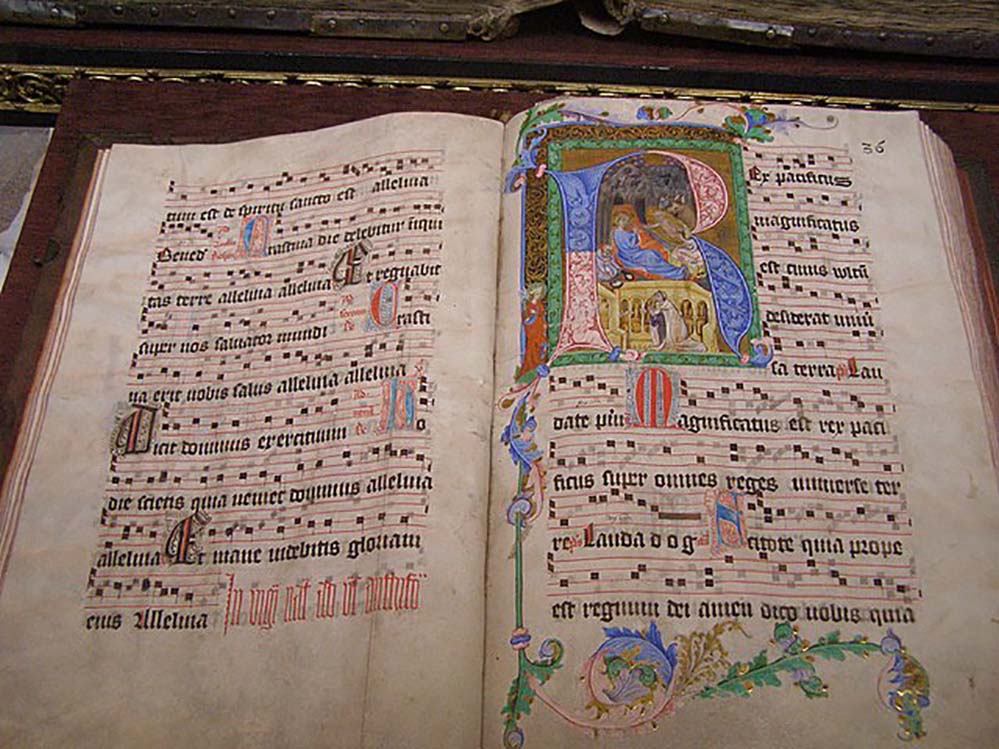 tum est de spiritu sancto est alleluia
Crastina die delebitur iniqui
tas terre alleluia alleluia Et regnabit
super nos saluator mundi Crasti
na erit uobis salus alleluia alleluia
Dicit dominus exercituum Ho
die scietis quia ueniet dominus alleluia
alleluia Et mane uidebitis gloriam
eius Alleluia In vigi
36
Rex pacificus
magnificatus
est cuius uultu
desiderat uniu
sa terra Lau
date pue Magnificatus est rex paci
ficus super omnes reges uniuerse ter
re Lauda Scitote quia prope
est regnum dei amen dico uobis quia